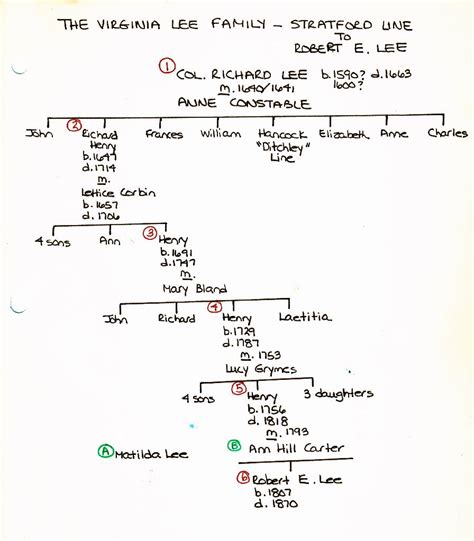 THE VIRGINIA LEE FAMILY – STRATFORD LINE
TO
ROBERT E. LEE
① COL. RICHARD LEE b. 1590? d. 1663
m. 1640/1641 1600?
ANNE CONSTABLE
John ② Richard Frances William Hancock Elizabeth Anne Charles
Henry "Ditchley"
b. 1647 Line
d. 1714
m.
Lettice Corbin
b. 1657
d. 1706
4 sons Ann ③ Henry
b. 1691
d. 1747
m.
Mary Bland
John Richard ④ Henry Laetitia
b. 1729
d. 1787
m. 1753
Lucy Grymes
4 sons ⑤ Henry 3 daughters
b. 1756
d. 1818
m. 1793
Ⓐ Matilda Lee Ⓑ Ann Hill Carter
⑥ Robert E. Lee
b. 1807
d. 1870